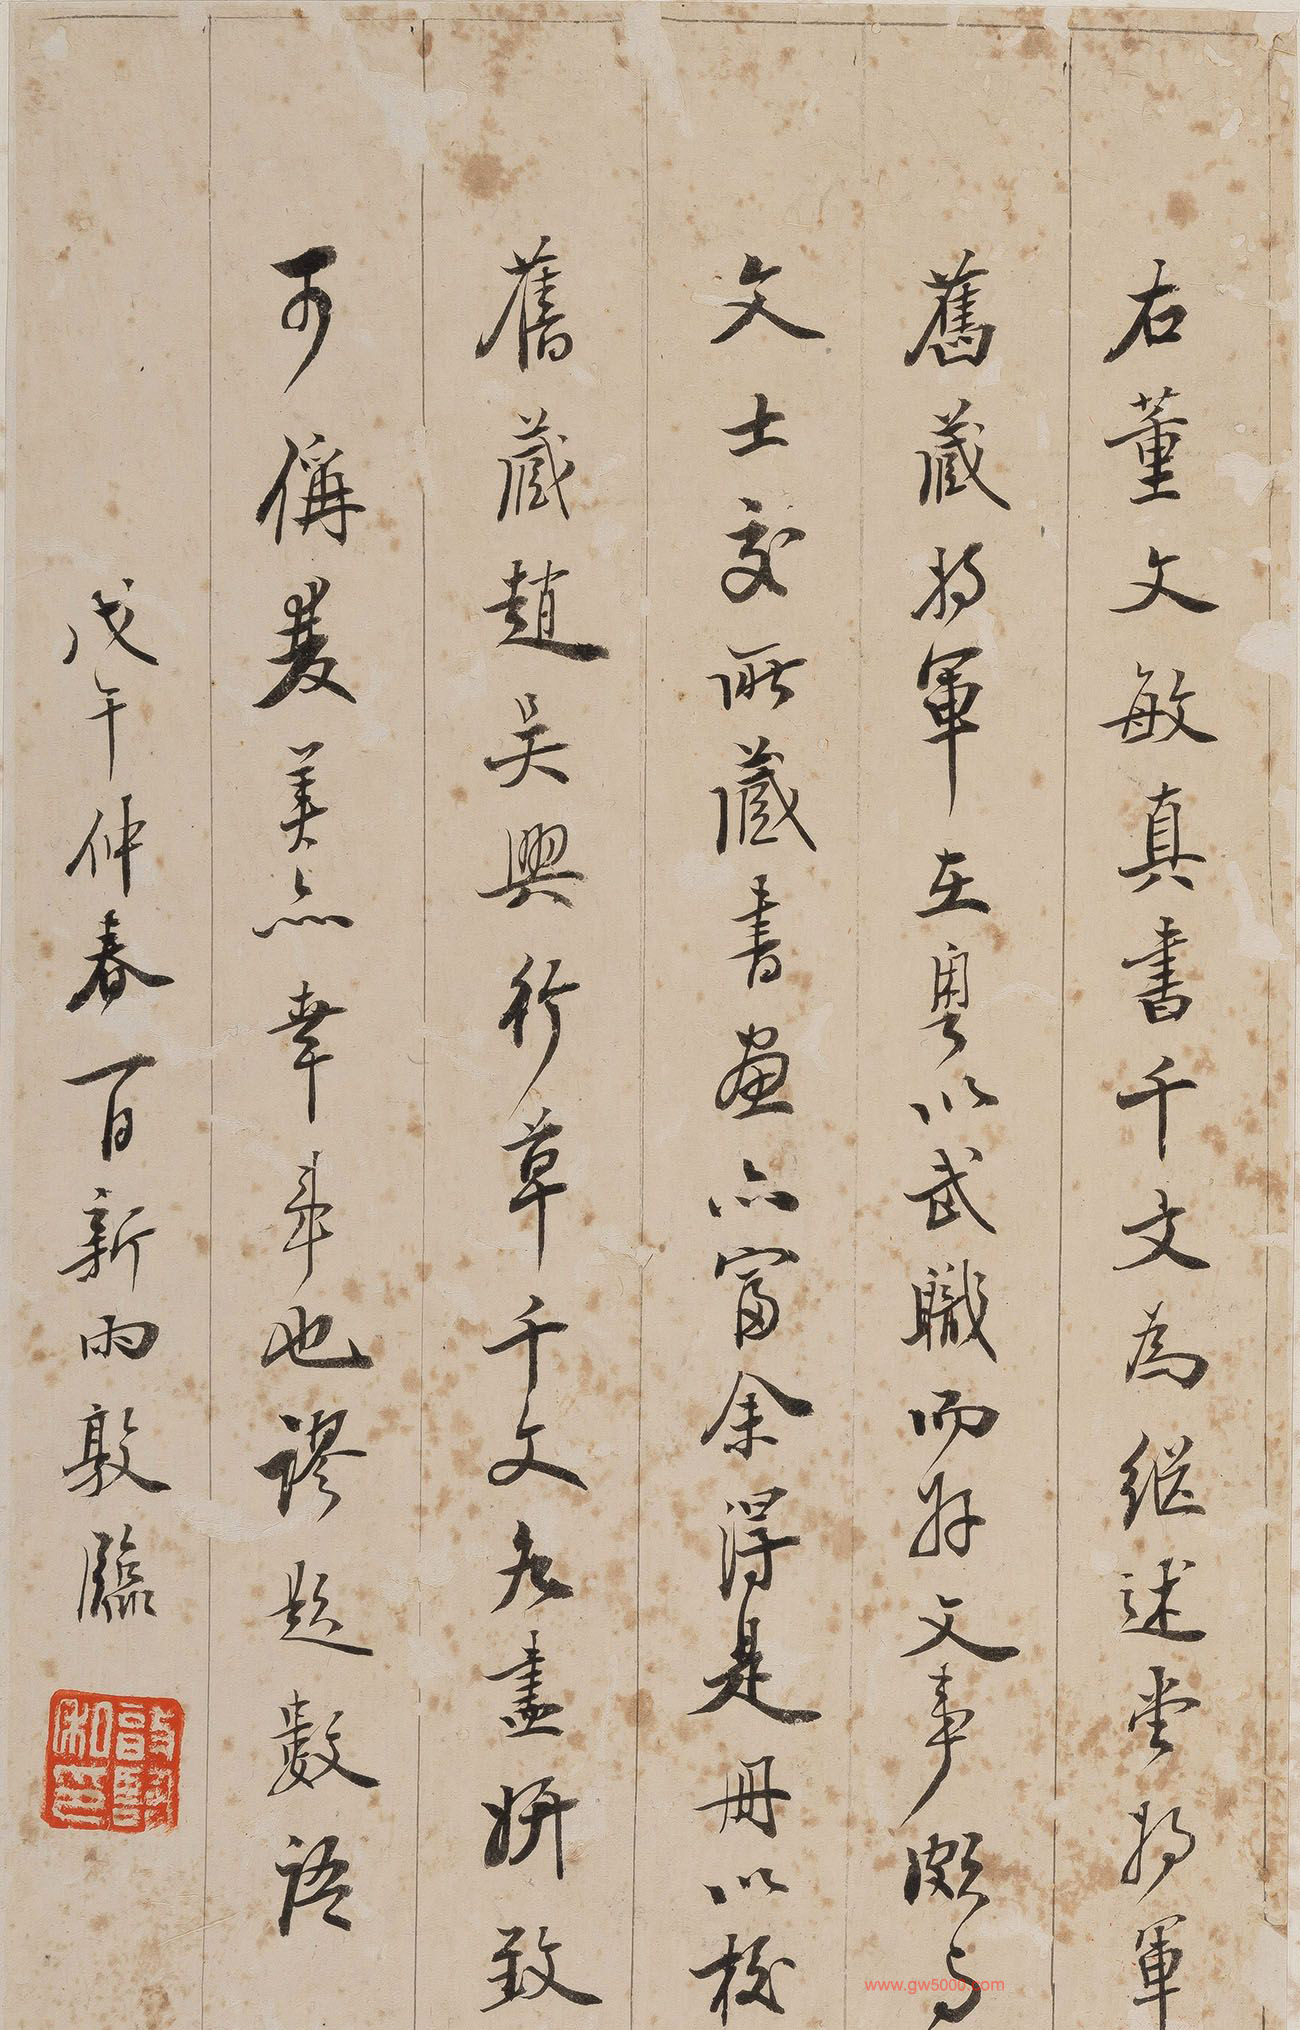 右董文敏真書千文為繼述堂將軍
舊藏將軍在粵以武職而好文事頗與
文士交所藏書畫亦富余得是冊以校
舊藏趙吳興行草千文各盡妍致
可稱雙美亦幸事也謬題數語
戊午仲春百新雨敦臨
www.gw5000.com